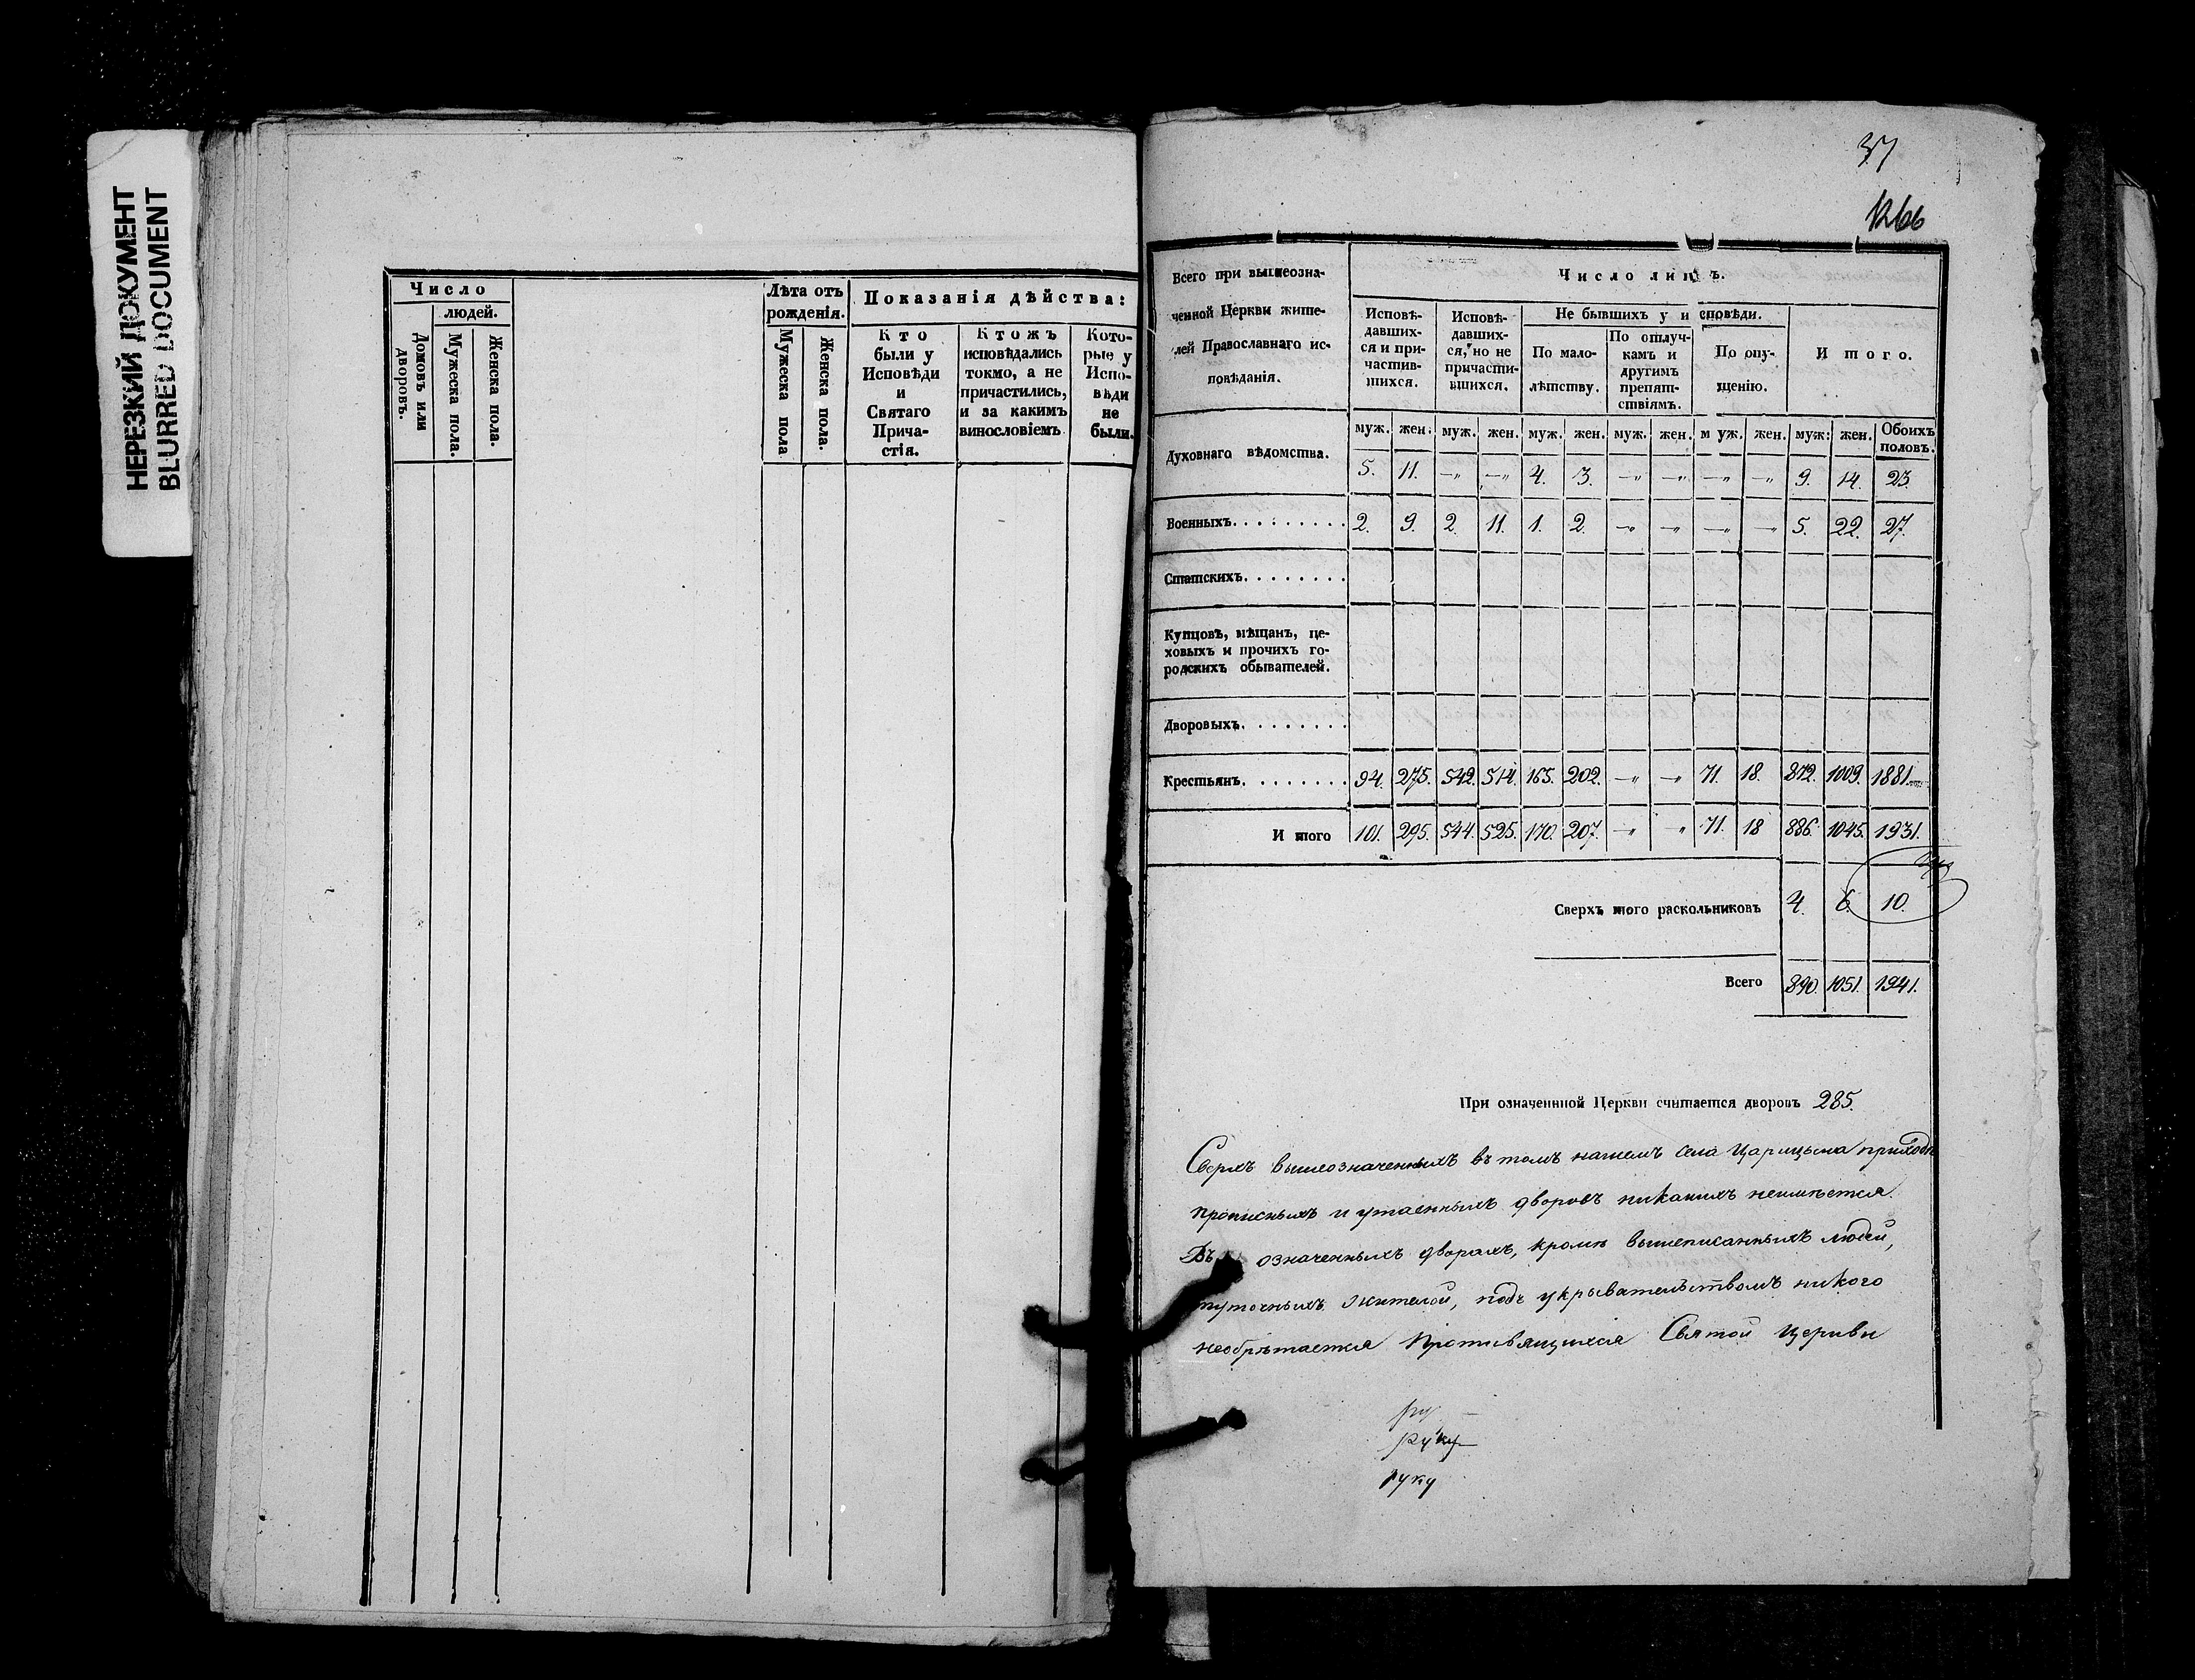 НЕРЕЗКИЙ ДОКУМЕНТ
BLURRED DOCUMENT
Число
людей.
Домовъ или дворовъ.
Мужеска пола.
Женска пола.
Лѣта отъ рожденія.
Мужеска пола
Женска пола.
Показанія дѣйства:
Кто
были у
Исповѣди
и
Святаго
Прича-
стія.
Ктожъ
исповѣдались
токмо, а не
причастились,
и за какимъ
винословіемъ
Кото-
рые у
Испо-
вѣди
не
были.
37
1266
Всего при вышеозна-
ченной Церкви жите-
лей Православнаго ис-
повѣданія.
Число лицъ.
Исповѣ-
давших-
ся и при-
частив-
шихся.
Исповѣ-
давших-
ся, но не
причасти-
вшихся.
Не бывшихъ у исповѣди.
По мало-
лѣтству.
По отлуч-
камъ и
другимъ
препят-
ствіямъ.
По опу-
щенію.
Итого.
муж. жен. муж. жен. муж. жен. муж. жен. муж. жен. муж: жен. Обоихъ половъ.
Духовнаго вѣдомства. 5. 11. —„ —„ 4. 3. —„ —„ —„ —„ 9. 14. 23.
Военныхъ. . . . . . . . . 2. 9. 2. 11. 1. 2. —„ —„ —„ —„ 5. 22. 27.
Статскихъ. . . . . . . .
Купцовъ, мѣщанъ, це-
ховыхъ и прочихъ го-
родскихъ обывателей.
Дворовыхъ. . . . . . . .
Крестьянъ. . . . . . . . 94. 275. 542. 514. 165. 202. —„ —„ 71. 18. 872. 1009. 1881.
И того 101. 295. 544. 525. 170. 207. —„ „ 71. 18 886. 1045. 1931.
Сверхъ того раскольниковъ 4. 6. 10.
Всего 890. 1051. 1941.
При означеннной Церкви считается дворовъ 285.
Сверхъ вышеозначенныхъ въ томъ нашемъ села Царицына приходѣ
прописныхъ и утаенныхъ дворовъ никакихъ неимѣется.
Въ означенныхъ дворахъ, кромѣ вышеписанныхъ людей,
жителей, подъ укрывательствомъ никого
необрѣтается Противящихся Святой Церкви
ру
руку
руку